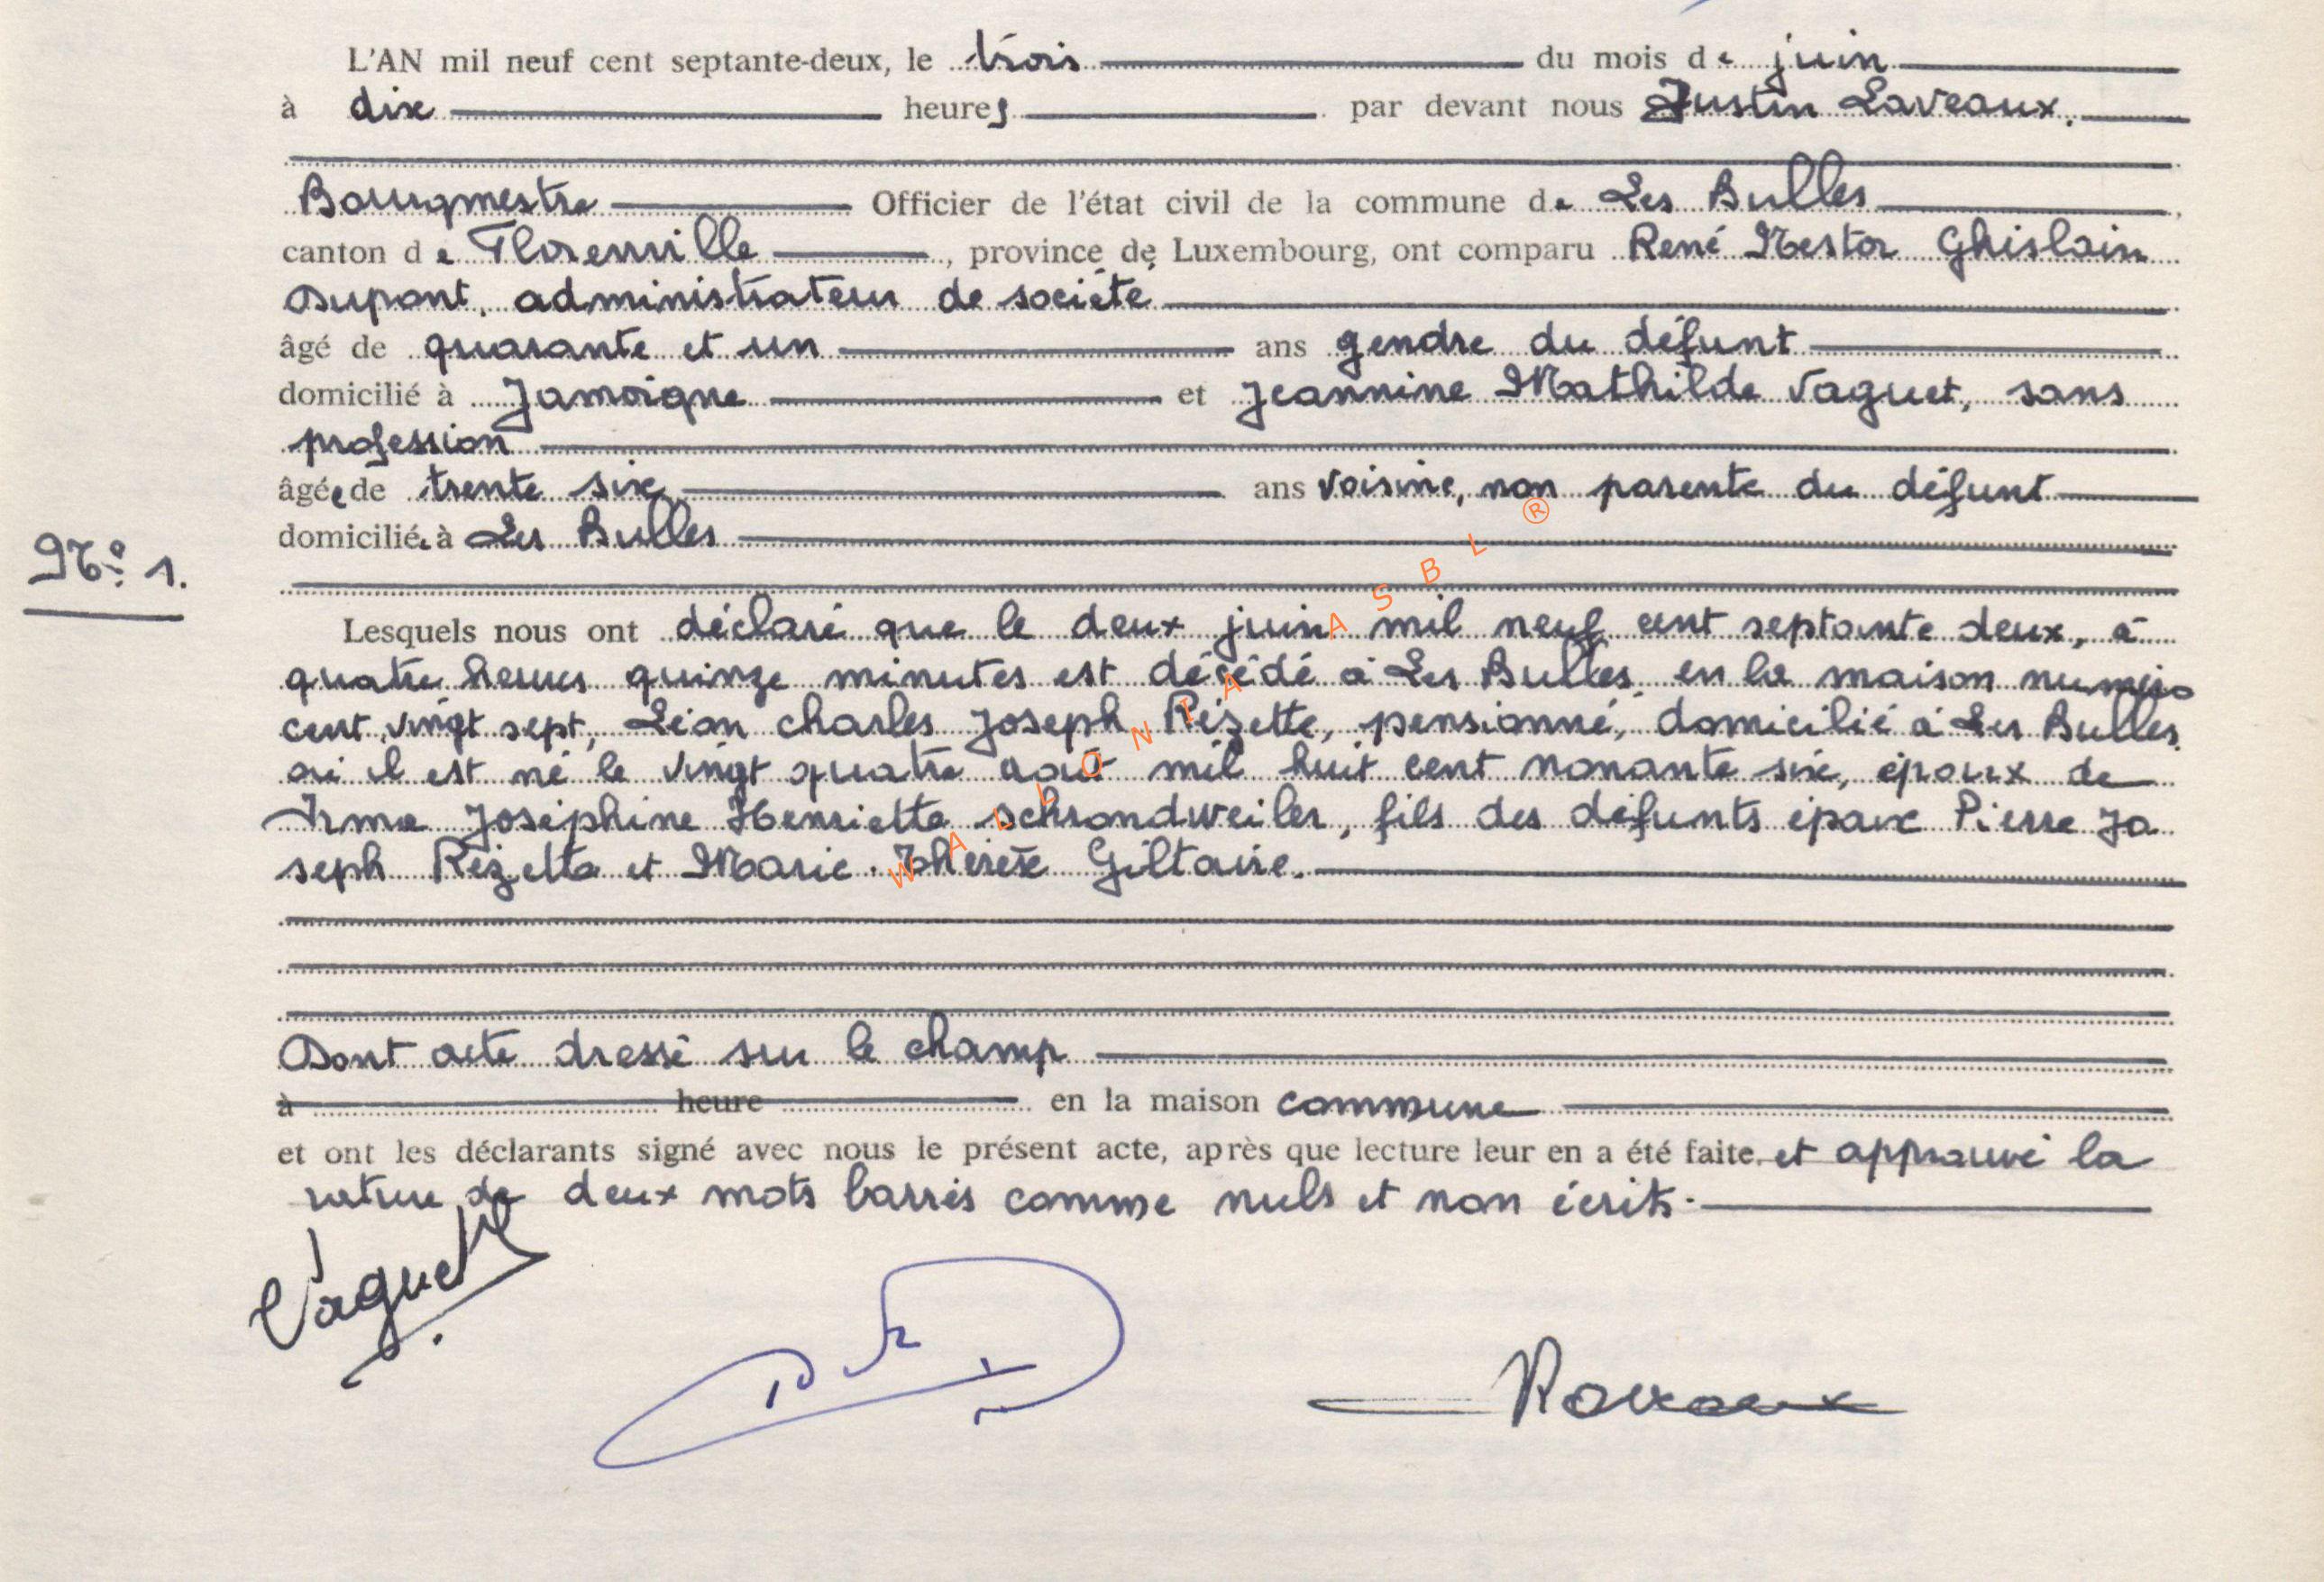 L'AN mil neuf cent septante-deux, le trois du mois de juin
à dix heures par devant nous Justin Laveaux,
Bourgmestre Officier de l'état civil de la commune de Les Bulles,
canton de Florenville, province de Luxembourg, ont comparu René Nestor Ghislain
Dupont, administrateur de société
âgé de quarante et un ans gendre du défunt
domicilié à Jamoigne et Jeannine Mathilde Vaguet, sans
profession
âgée de trente six ans voisine, non parente du défunt
domiciliée à Les Bulles
No 1.
Lesquels nous ont déclaré que le deux juin mil neuf cent septante deux, à
quatre heures quinze minutes est décédé à Les Bulles, en la maison numéro
cent vingt sept, Léon Charles Joseph Rézette, pensionné, domicilié à Les Bulles
où il est né le vingt quatre août mil huit cent nonante six, époux de
Irma Joséphine Henriette Schrondweiler, fils des défunts époux Pierre Jo
seph Rézette et Marie-Thérèse Giltaire.
Dont acte dressé sur le champ
à heure en la maison commune
et ont les déclarants signé avec nous le présent acte, après que lecture leur en a été faite. et approuvé la
rature de deux mots barrés comme nuls et non écrits.
Vaguet
WALLONIA ASBL ®